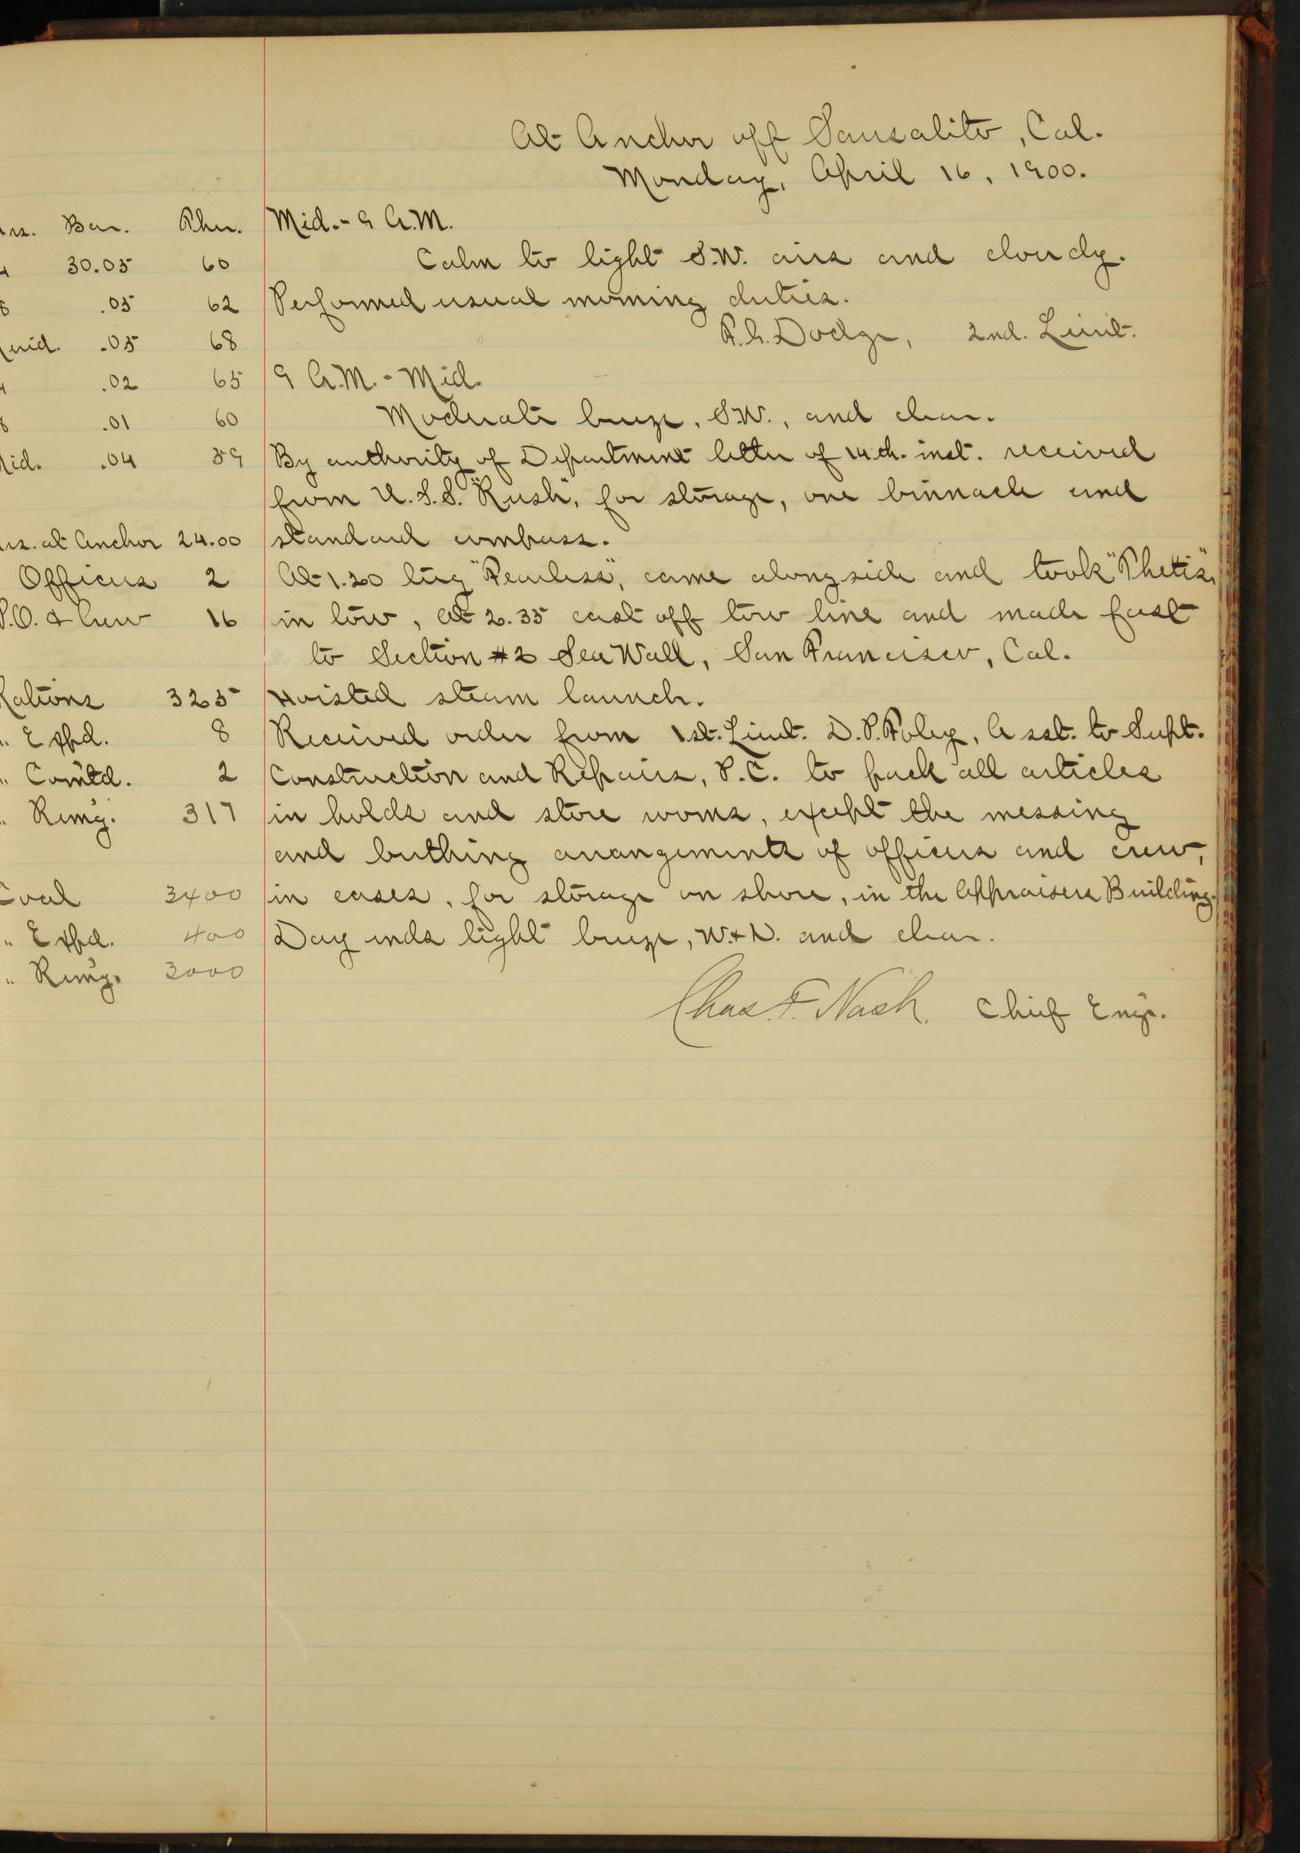 At Anchor off Sausalito, Cal.
Monday, April 16, 1900.
Bar. Ther.
30.05 60
8 .05 62
Merid. .05 68
4 .02 65
8 .01 60
Mid. .04 59
Hrs. at Anchor 24.00
Officers 2
P.O. & Crew 16
Rations 325
" Expd. 8
" Com'td. 2
" Rem'g. 317
Coal 3400
" Expd. 400
" Rem'g. 3000
Mid. - 9 A.M.
Calm to light S.W. airs and cloudy.
Performed usual morning duties.
F.G. Dodge, 2nd. Lieut.
9 A.M. - Mid.
Moderate breeze, S.W., and clear.
By authority of Department letter of 14th. inst. received
from U.S.S. "Rush", for storage, one binnacle and
standard compass.
At 1.20 tug "Fearless", came alongside and took "Thetis",
in tow, at 2.35 cast off tow line and made fast
to Section #2 Sea Wall, San Francisco, Cal.
Hoisted steam launch.
Received order from 1st. Lieut. D.P. Foley, Asst. to Supt.
Construction and Repairs, P.C. to pack all articles
in holds and store rooms, except the messing
and berthing arrangements of officers and crew,
in cases, for storage on shore, in the Appraisers Building.
Day ends light breeze, W.&N. and clear.
Chas. F. Nash. Chief Eng'r.